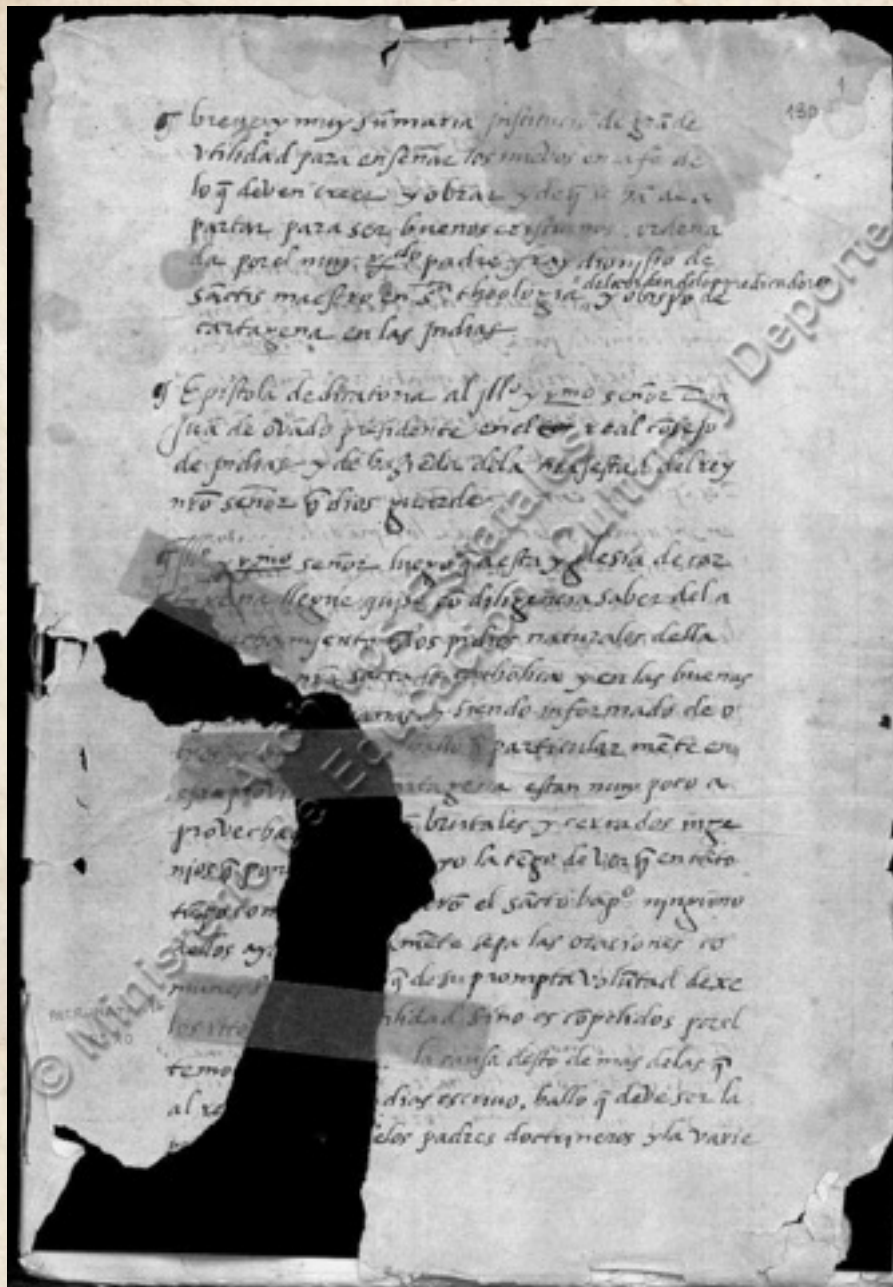 1
180
breve y muy sūmaria institucio de grāde
vtilidad para enseñar los nuevos en la fe de
lo q̄ deven creer y obrar y de q̄ se hā de a
partar para ser buenos cristianos. ordena
da por el muy Rdo padre fray dionisio de
de la orden de los predicadores
sāctis maestro en Sta theologia y obispo de
cartagena en las Indias
Epistola dedicatoria al Illo y rmo señor Don
Juā de Ovādo presidente en el real cōsejo
de indias y de haziēda de la Majestad del rey
nro señor q̄ dios guarde
Illo y rmo señor luego q̄ a esta yglesia de car
tagena llegue quise cō diligencia saber del a
provechamiento de los indios naturales della
nra sācta fe catholica y en las buenas
y siendo informado de o
hallo q̄ particular mēte en
esta provincia de cartagena estan muy poco a
provechados brutales y cerrados inge
nios q̄ yo la tēgo de ver q̄ en tāto
tiēpo el sācto bapo. ninguno
dellos mēte sepa las oraciones co
munes q̄ de su prompta volūtad dexe
los vicios sino es cōpelidos por el
temor la causa desto de mas de las q̄
al rey dias escrivo, hallo q̄ deve ser la
de los padres doctrineros y la varie
PATRONATO
© Ministerio de Educación, Cultura y Deporte
Archivos Estatales